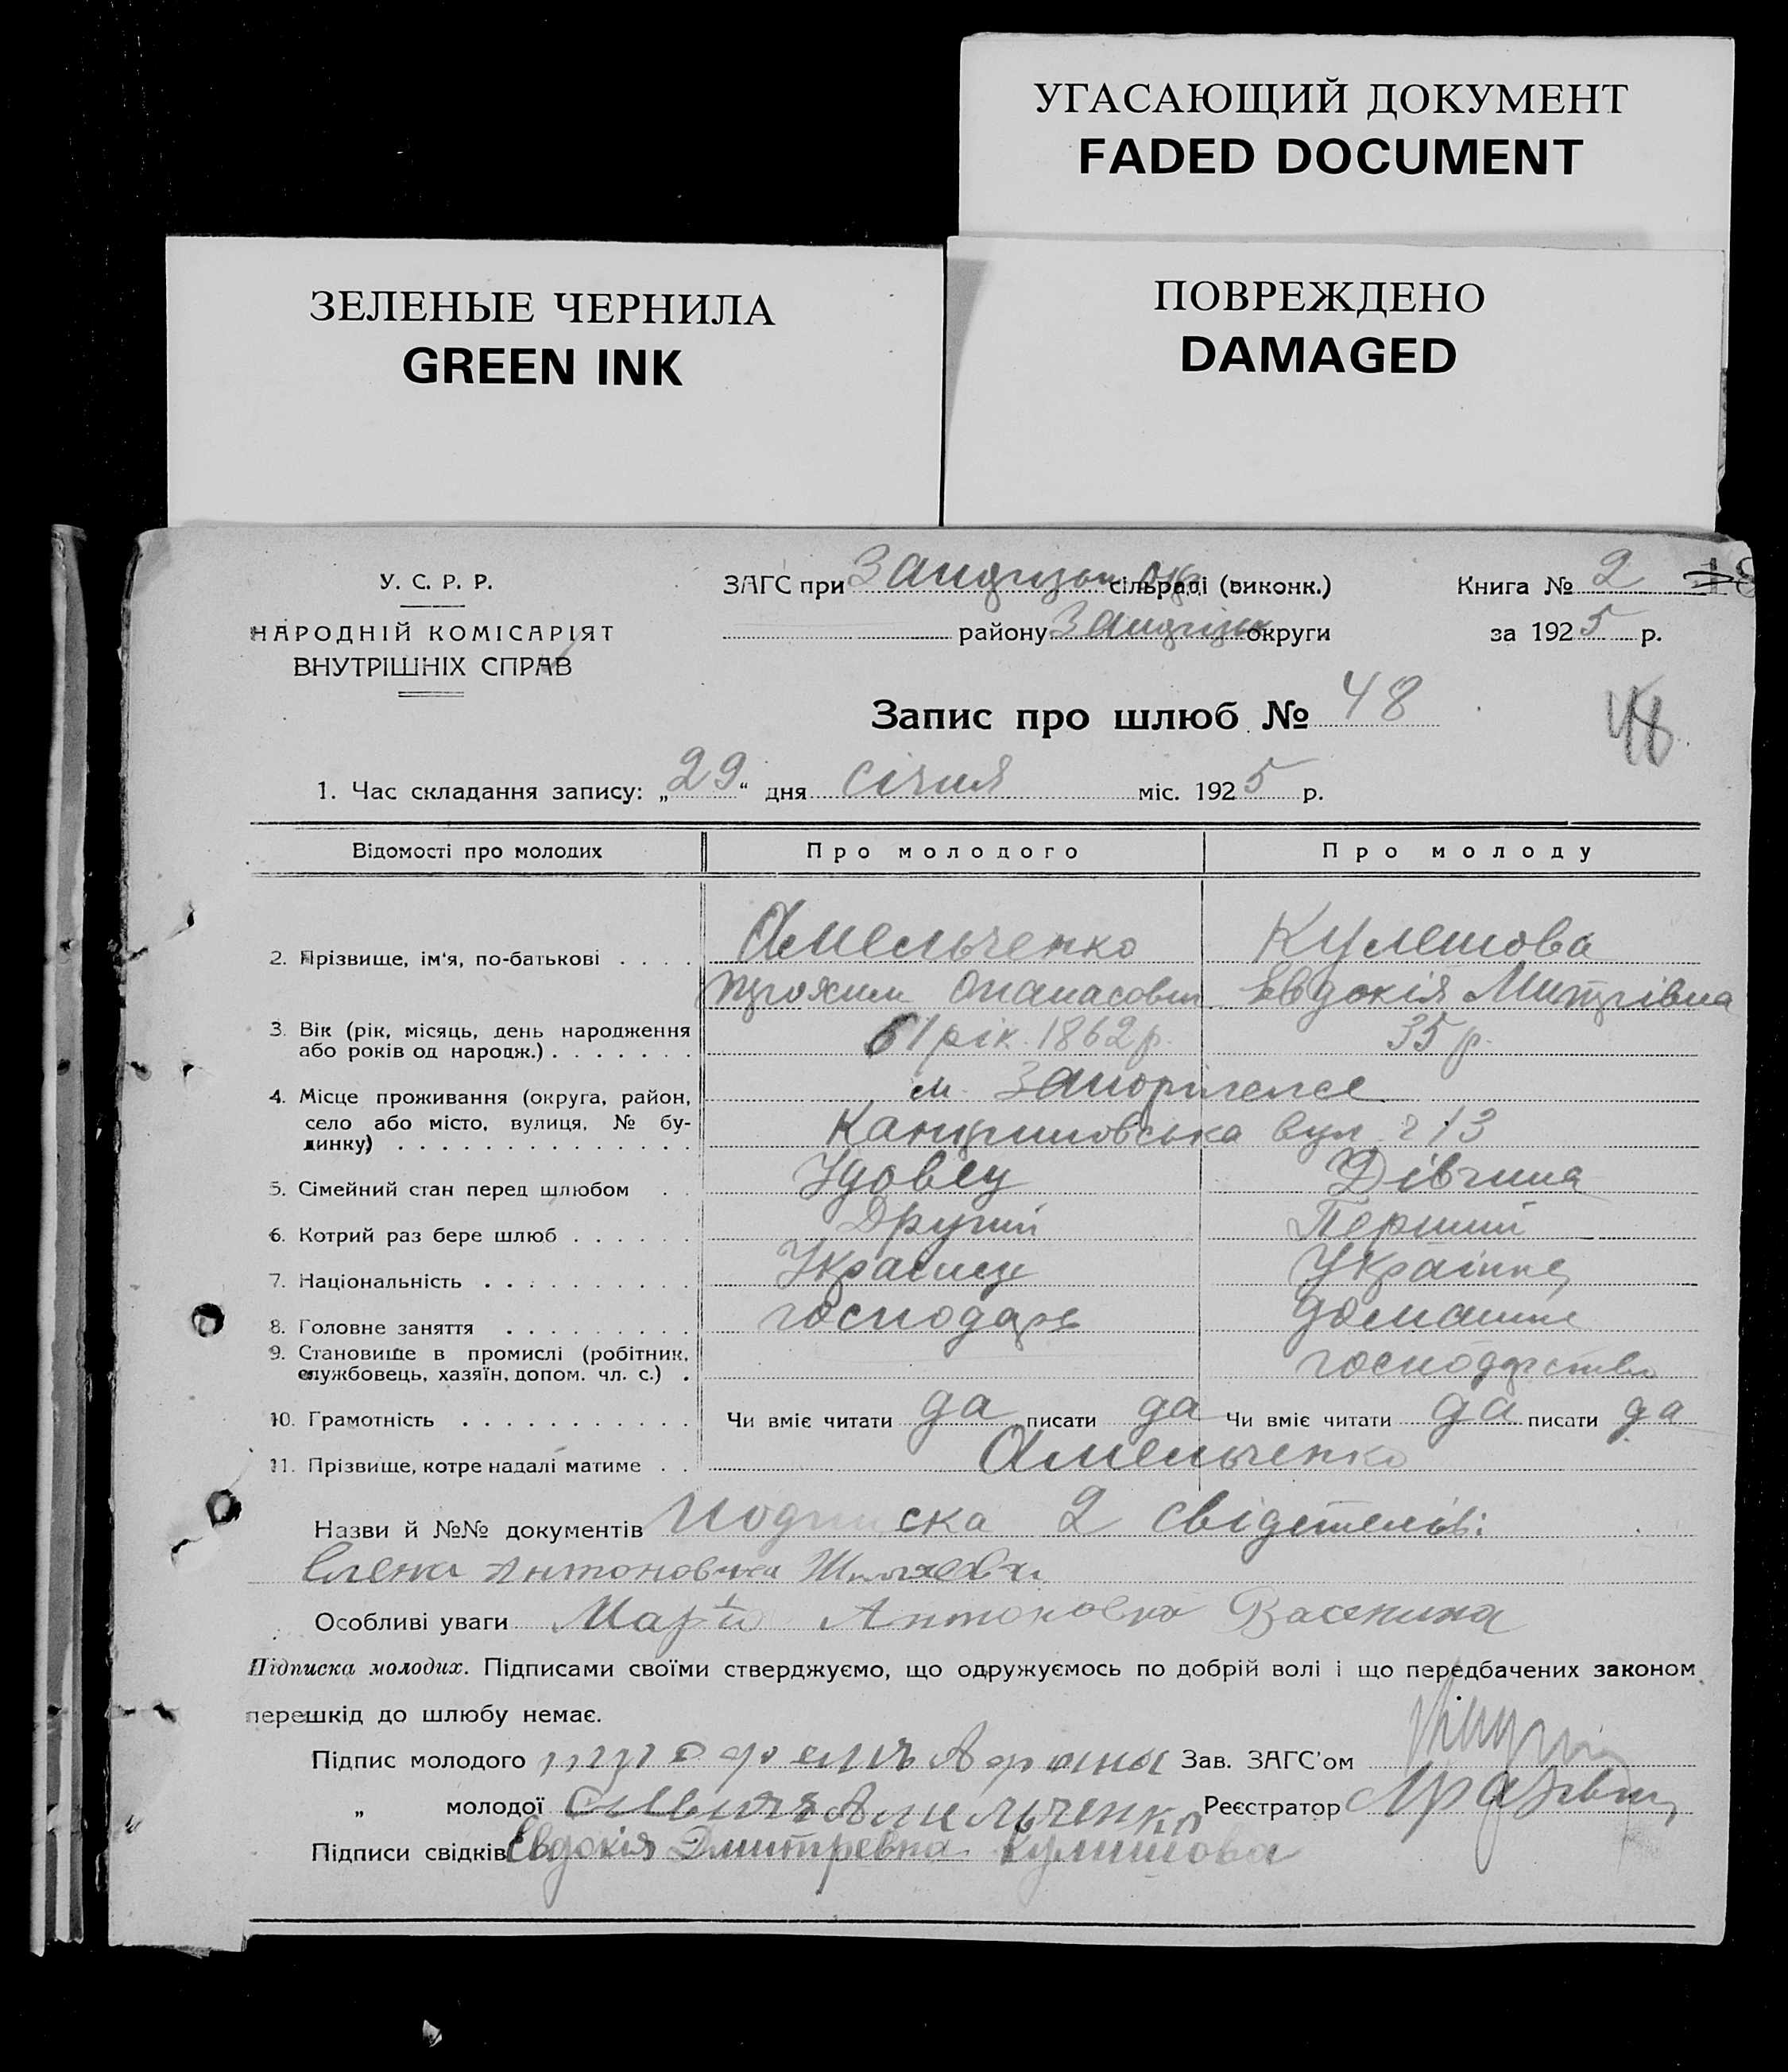 УГАСАЮЩИЙ ДОКУМЕНТ
FADED DOCUMENT
ЗЕЛЕНЫЕ ЧЕРНИЛА
GREEN INK
ПОВРЕЖДЕНО
DAMAGED
У. С. Р. Р.
НАРОДНІЙ КОМІСАРІЯТ
ВНУТРІШНІХ СПРАВ
ЗАГС при сільраді (виконк.)
району округи
Книга № 2
за 1925 р.
Запис про шлюб № 48
48
1. Час складання запису: „29“ дня січня міс. 1925 р.
Відомості про молодих Про молодого Про молоду
2. Прізвище, ім'я, по-батькові . . . . Омельченко Кулешова
Трохим Опанасович Евдокія Митрівна
3. Вік (рік, місяць, день народження
або років од народж.) . . . . . . . 61 рік. 1862 р. 35 р.
4. Місце проживання (округа, район,
село або місто, вулиця, № бу-
динку) . . . . . . . . . . . . . .
м. Запоріжже
вул. 13
5. Сімейний стан перед шлюбом . . Удовец Дівчина
6. Котрий раз бере шлюб . . . . . . Другий Перший
7. Національність . . . . . . . . . . Украинец Украінка
8. Головне заняття . . . . . . . . . господарь домашнє
9. Становище в промислі (робітник,
службовець, хазяїн, допом. чл. с.) . господарство
10. Грамотність . . . . . . . . . . . Чи вміє читати да писати да Чи вміє читати да писати да
11. Прізвище, котре надалі матиме . . Омельченко
Назви й №№ документів подписка 2 свідетелів:
Елена Антоновна
Особливі уваги Марія Антоновна Васекина
Підписка молодих. Підписами своїми стверджуємо, що одружуємось по добрій волі і що передбачених законом
перешкід до шлюбу немає.
Підпис молодого Зав. ЗАГС'ом
„ молодої Амельченко Реєстратор
Підписи свідків Евдокія Дмитревна Кулишова